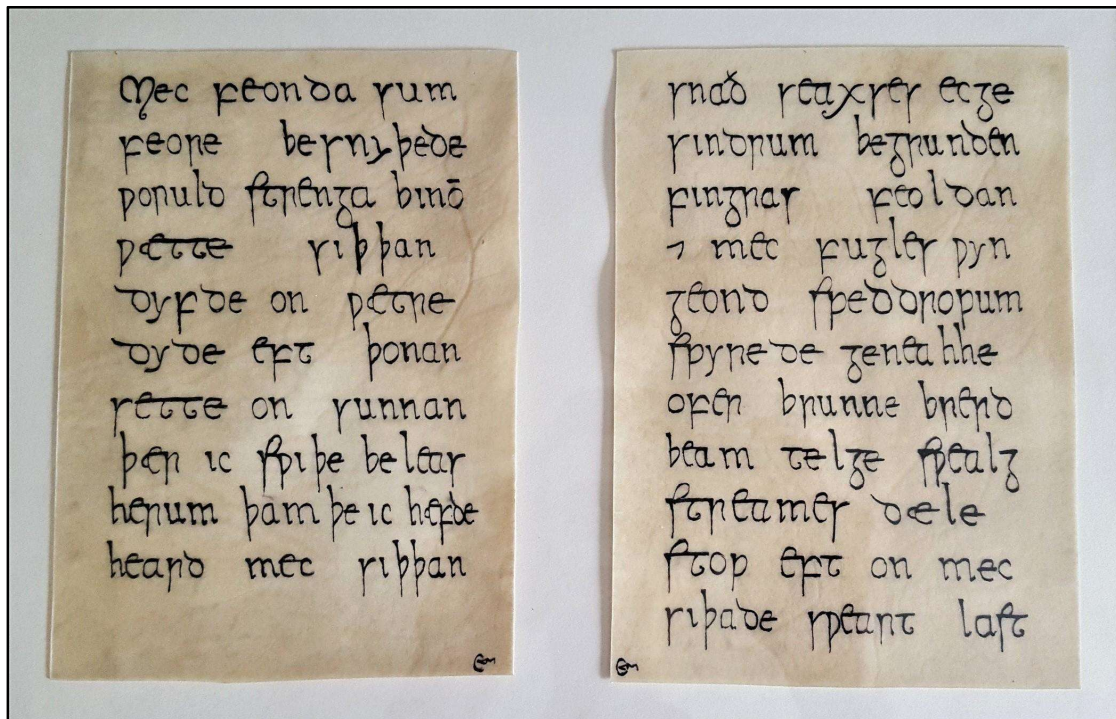 Mec feonda sum
feore besnyþede
ƿoruld strenga binō
ƿætte siþþan
dyfde on ƿætre
dyde eft þonan
sette on sunnan
þær ic sƿiþe beleas
herum þam þe ic hæfde
heard mec siþþan
snað seaxses ecge
sindrum begrunden
fingras feoldan
⁊ mec fugles ƿyn
geond speddropum
spyrede geneahhe
ofer brunne brerd
beam telge sƿealg
streames dæle
stop eft on mec
siþade sƿeart last